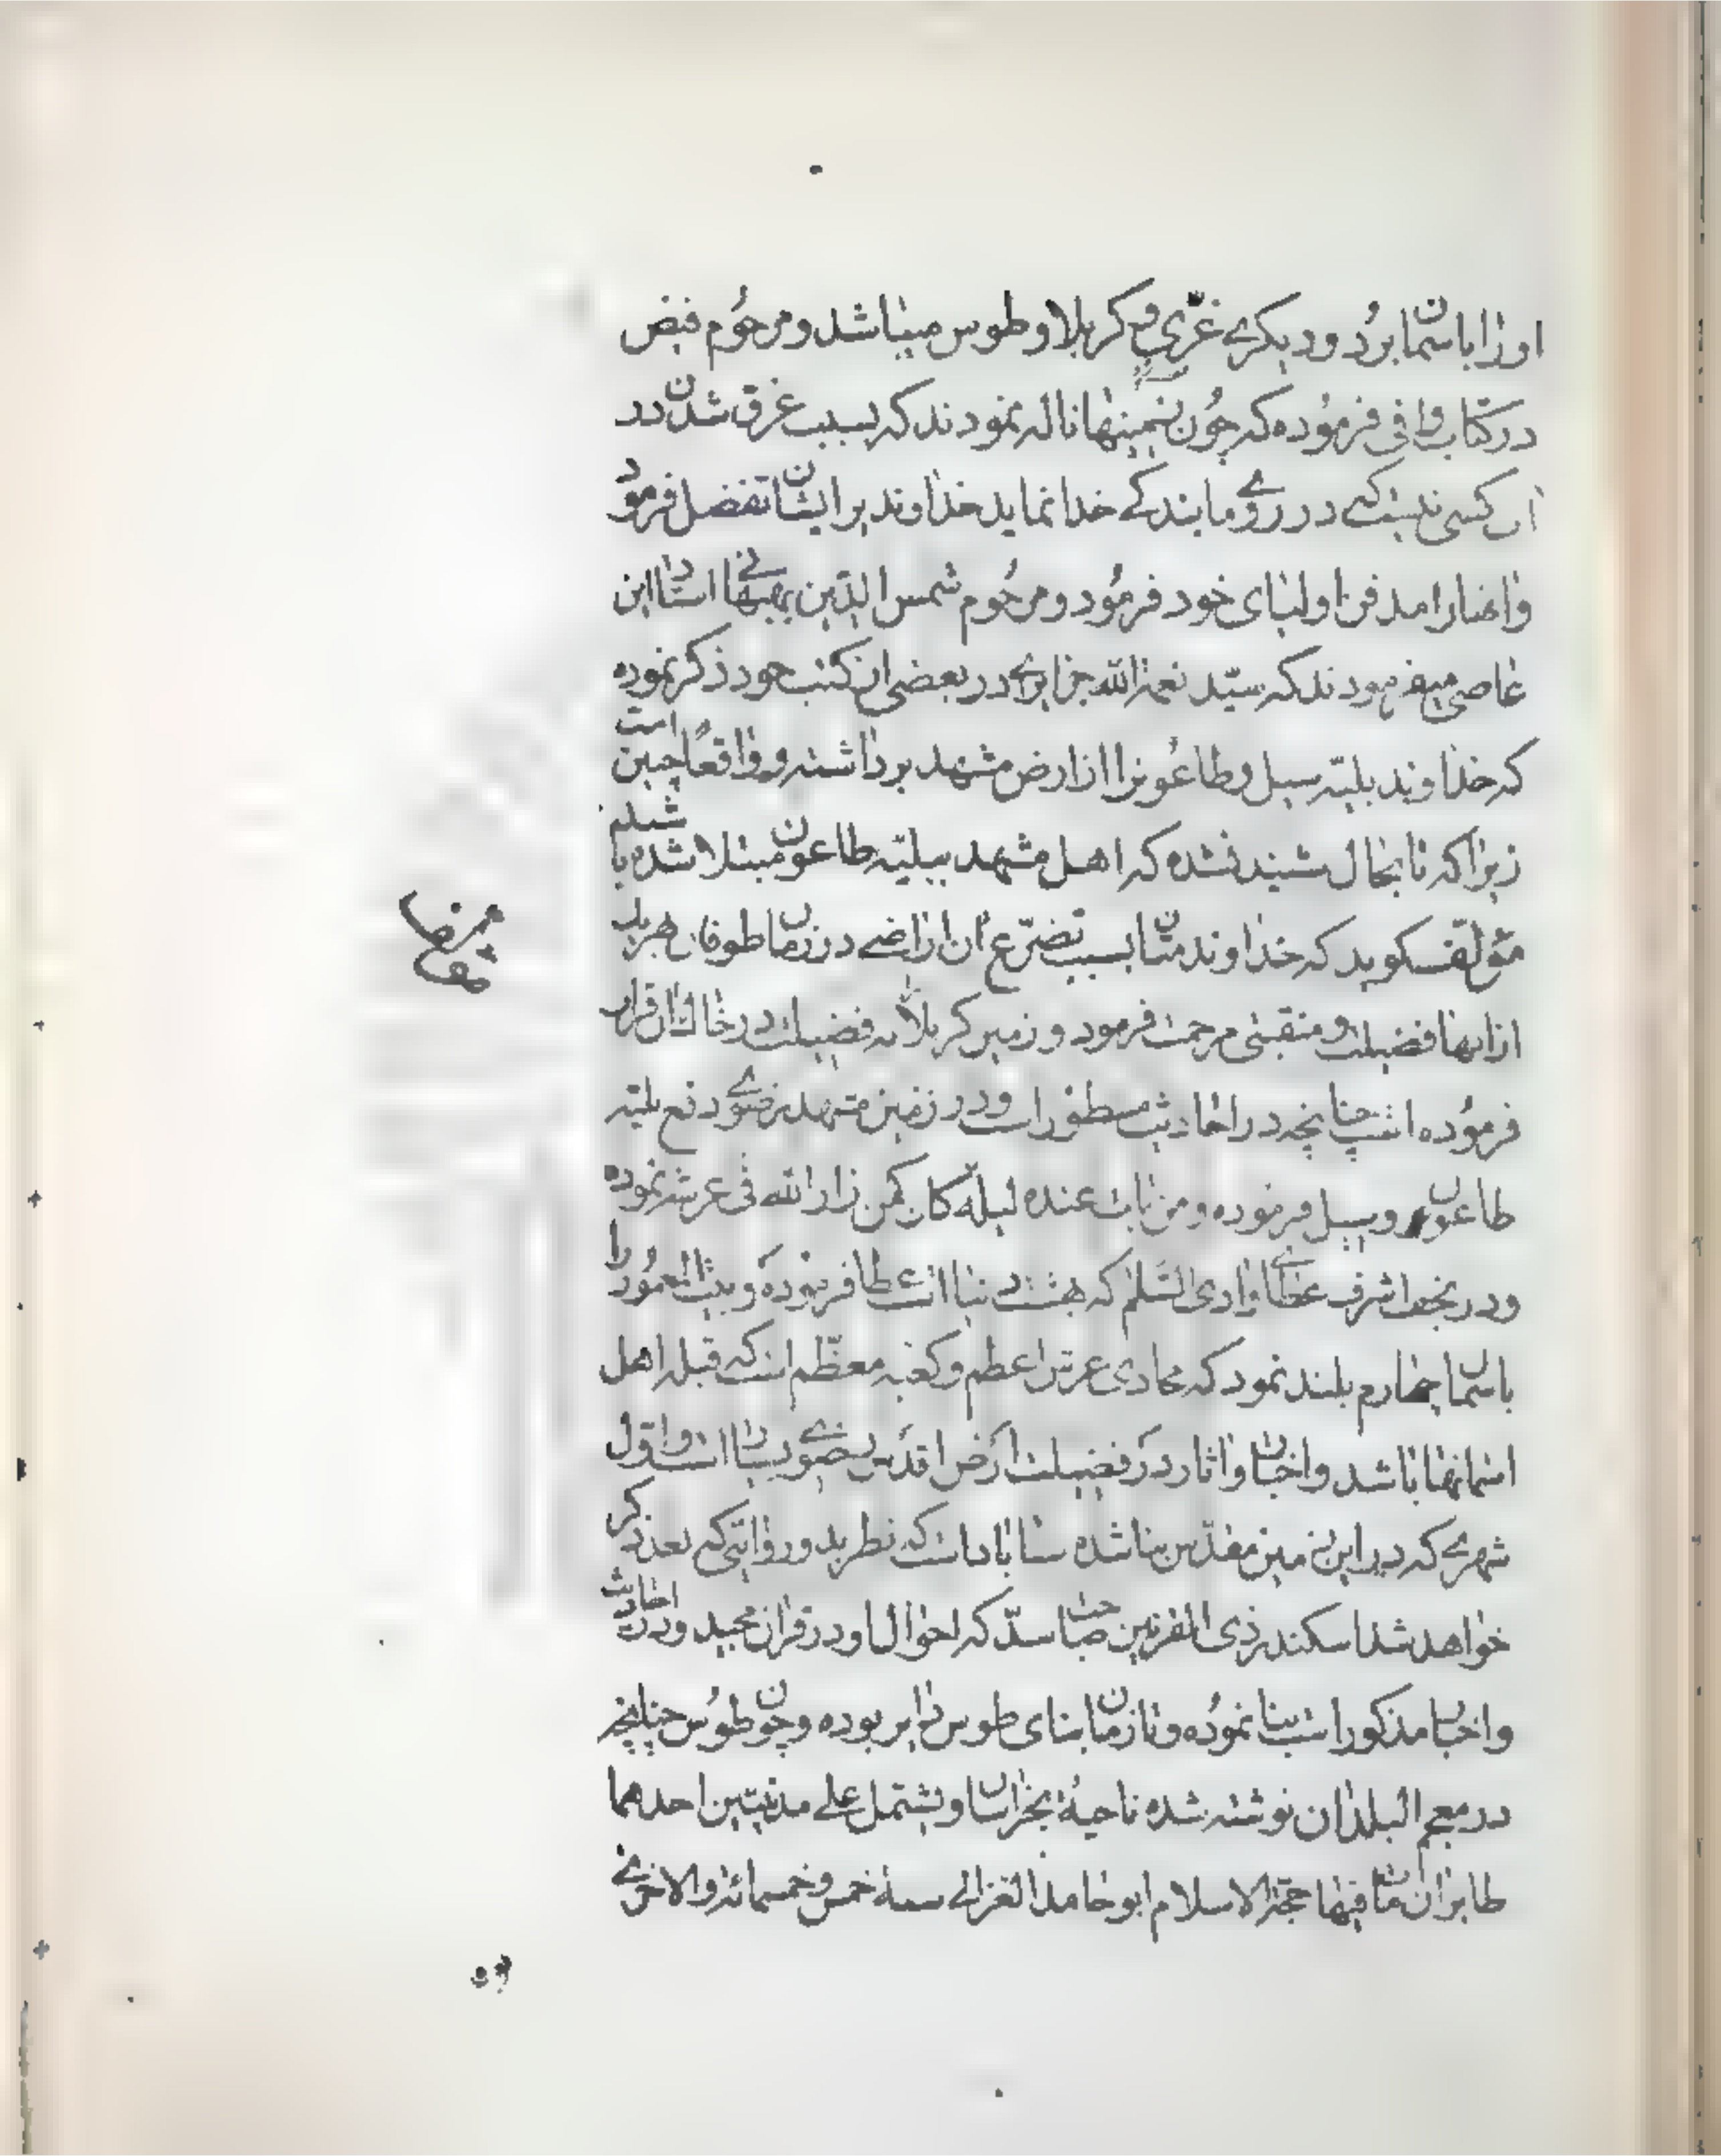 او را باسمان برد و دیکرے غری و کربلا و طوس میباشد و مرحوم فیض
در کتاب وافی فرموده که چون زمینها ناله نمودند که بسبب غرق شدن در
آب کسی نیست که در روے ما بندکے خدا نماید خداوند بر ایشان تفضل فرمود
و انها را مدفن اولیای خود فرمود و مرحوم شمس الدین بهبهانے استاد این
عاصی میفرمودند که سید نعمة الله جزایرے در بعضی از کتب خود ذکر نموده
که خداوند بلیه سیل و طاعون را از ارض مشهد برداشته و واقعا چنین است
زیرا که تا بحال شنیده نشده که اهل مشهد ببلیه طاعون مبتلا شده باشند
مؤلف کوید که خداوند منان بسبب تضرع آن اراضے در زمان طوفان هر یک
از انها فضیلت و منقبتی مرحمت فرمود و زمین کربلا نه فضیلت در خاک ان قرار
فرموده است چنانچه در احادیث مسطور است و در زمین مشهد رضوے دفع بلیه
طاعون و سیل فرموده و من بات عنده لیلة کان کمن زار الله فی عرشه نموده
و در نجف اشرف عطاے وادی السلم که هشت دنیا است عطا فرموده و بیت المعمور را
باسمان چهارم بلند نمود که محاذی عرش اعظم و کعبه معظم است که قبله اهل
اسمانها باشد و اخبار و اثار در فضیلت ارض اقدس رضوے بسیار است و اول
شهرے که در این زمین مقدس بنا شده سناباد است که نظر بدو روایتی که بعد ذکر
خواهد شد اسکندر ذی القرنین صاحب سد که احوال او در قران مجید و در احادیث
و اخبار مذکور است بنا نموده و تا زمان بنای طوس دایر بوده و چون طوس چنانچه
در معجم البلدان نوشته شده ناحیة بخراسان و یشتمل علے مدینتین احدهما
طابران مات فیها حجة الاسلام ابو حامد الغزالے سنة خمس و خمسمائة و الاخرے